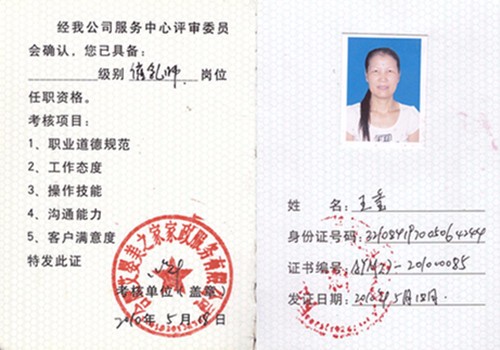 经我公司服务中心评审委员
会确认，您已具备：
级别 催乳师 岗位
任职资格。
考核项目：
1、职业道德规范
2、工作态度
3、操作技能
4、沟通能力
5、客户满意度
特发此证
考核单位（盖章）
2010年5月18日
艾婴美之家家政服务有限公司
姓 名：王
身份证号码：
证书编号：
发证日期：2010年5月18日